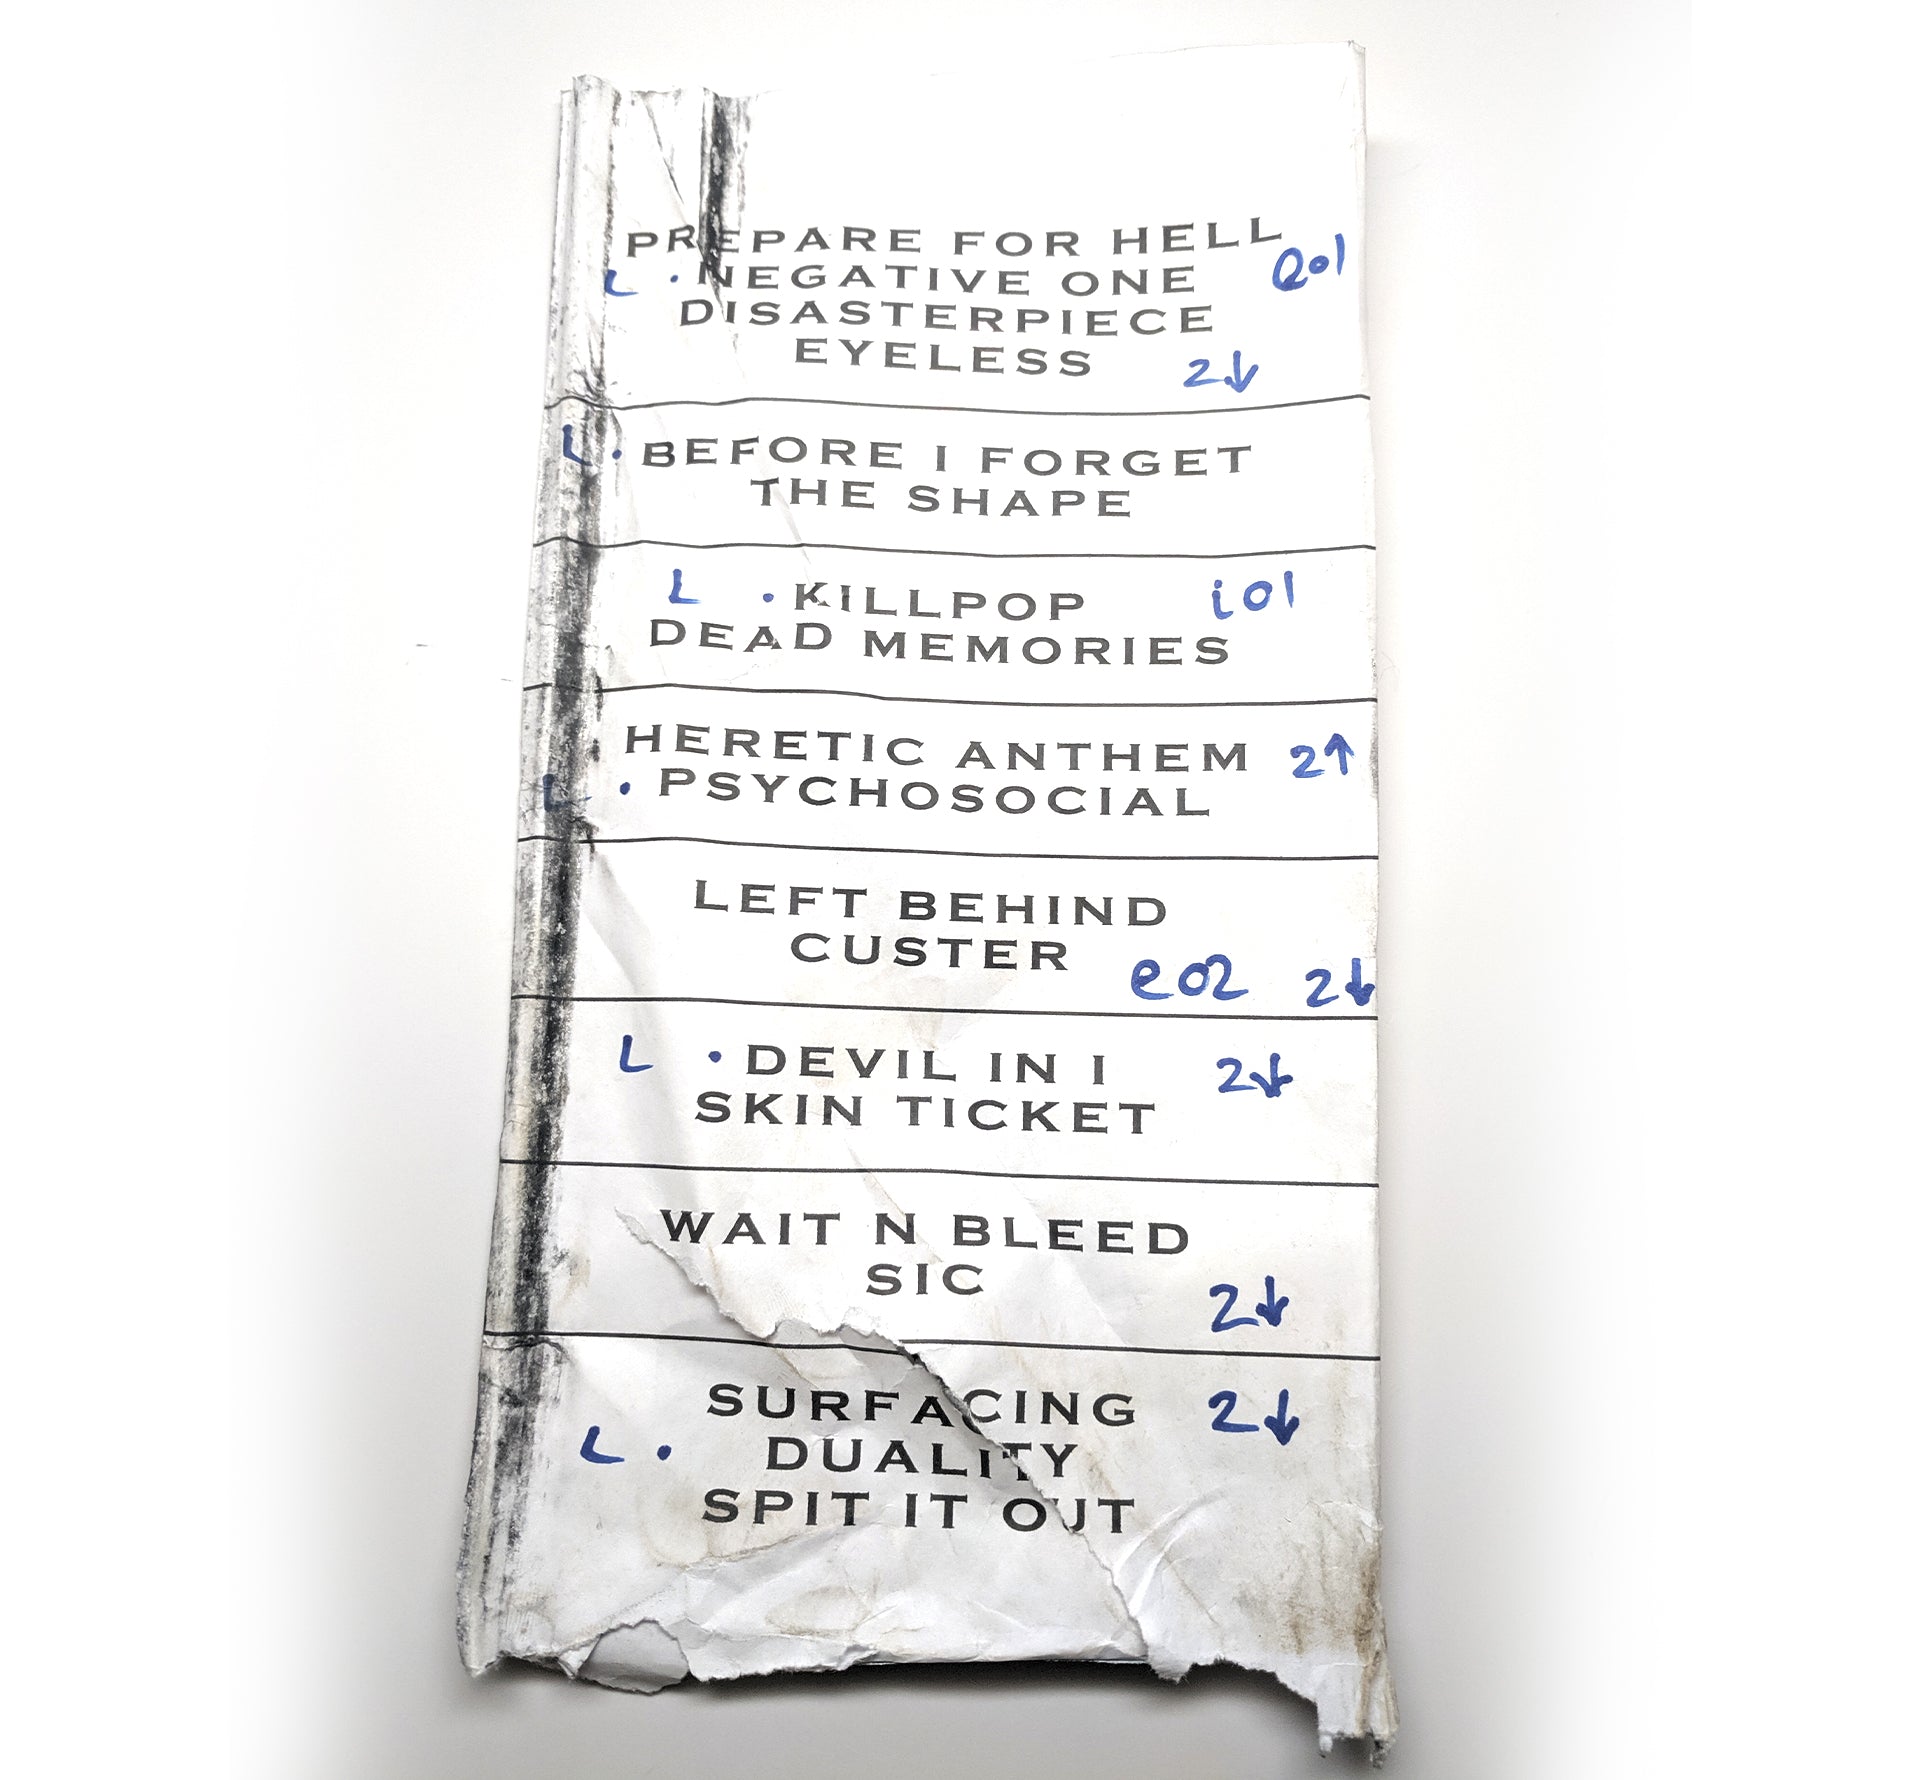 PREPARE FOR HELL
L • NEGATIVE ONE e01
DISASTERPIECE
EYELESS 2↓
L • BEFORE I FORGET
THE SHAPE
L • KILLPOP i01
DEAD MEMORIES
HERETIC ANTHEM 2↑
L • PSYCHOSOCIAL
LEFT BEHIND
CUSTER e02 2↓
L • DEVIL IN I 2↓
SKIN TICKET
WAIT N BLEED
SIC 2↓
SURFACING 2↓
L • DUALITY
SPIT IT OUT